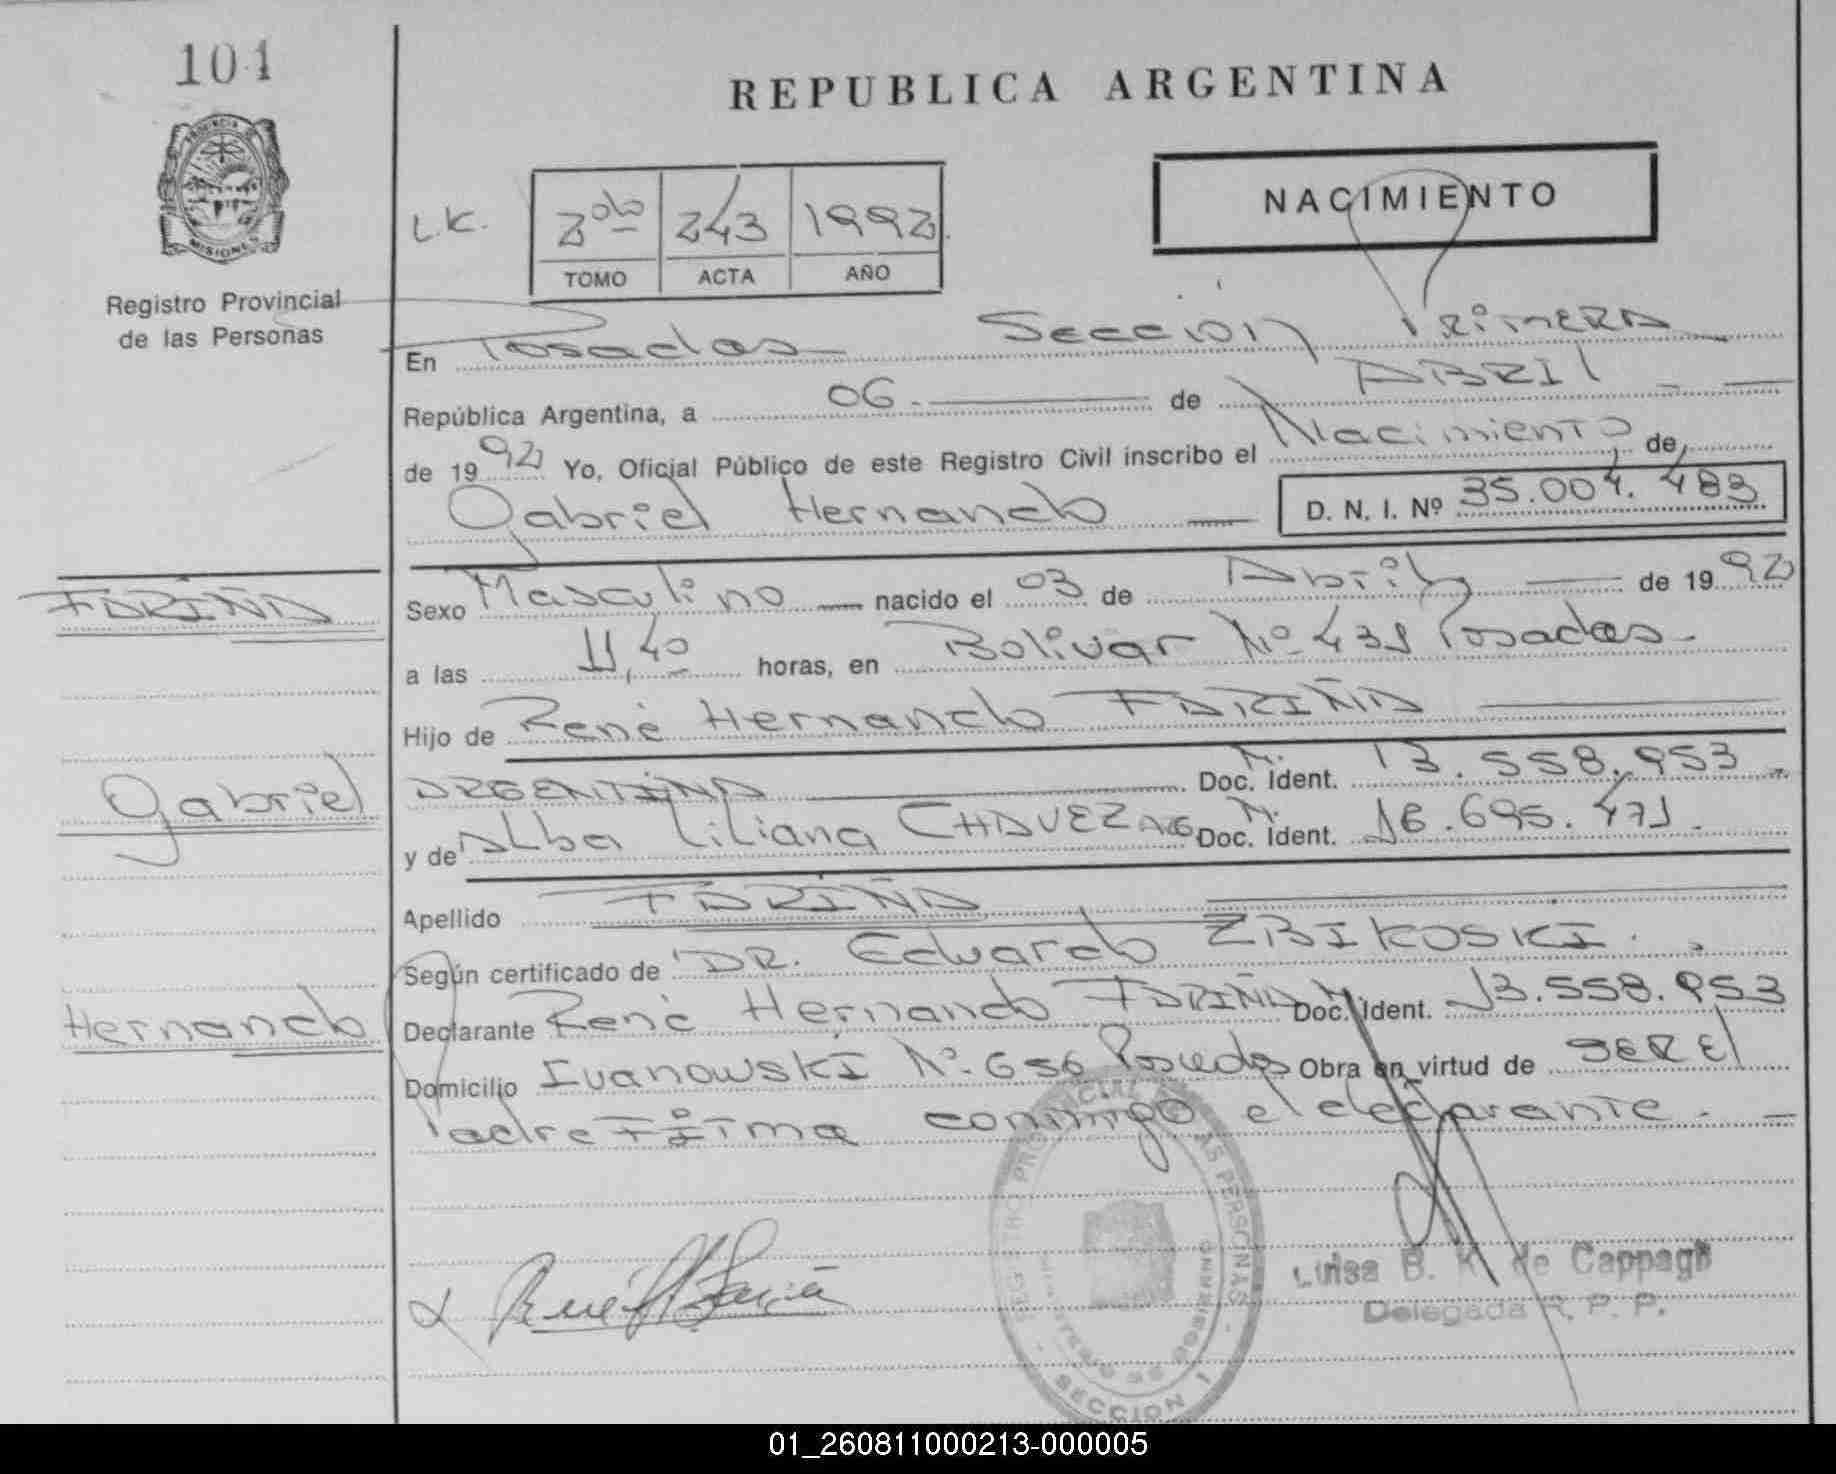 101
PROVINCIA DE
MISIONES
Registro Provincial
de las Personas
REPUBLICA ARGENTINA
NACIMIENTO
L.K.
2do 243 1992.
TOMO ACTA AÑO
En Posadas Sección Primera
República Argentina, a 06. de ABRIL
de 1992 Yo, Oficial Público de este Registro Civil inscribo el Nacimiento de
Gabriel Hernando D. N. I. Nº 35.004.483
FARIÑA
Sexo Masculino nacido el 03 de Abril de 1992
a las 11,40 horas, en Bolivar Nº 431 Posadas.
Hijo de René Hernando FARIÑA
Gabriel
ARGENTINA Doc. Ident. M. 13.558.953.
y de Alba Liliana CHAVEZ ARG. Doc. Ident. M. 16.695.471.
Apellido FARIÑA
Según certificado de DR. Eduardo ZBIKOSKI.
Hernando
Declarante René Hernando FARIÑA Doc. Ident. M. 13.558.953
Domicilio Ivanowski Nº 656 Posadas Obra en virtud de SER El
Padre Firma conmigo el declarante.
REGISTRO PROVINCIAL DE LAS PERSONAS
MINISTERIO DE GOBIERNO
SECCION 1
René H Fariña
Luisa B. K. de Cappagli
Delegada R. P. P.
01_260811000213-000005